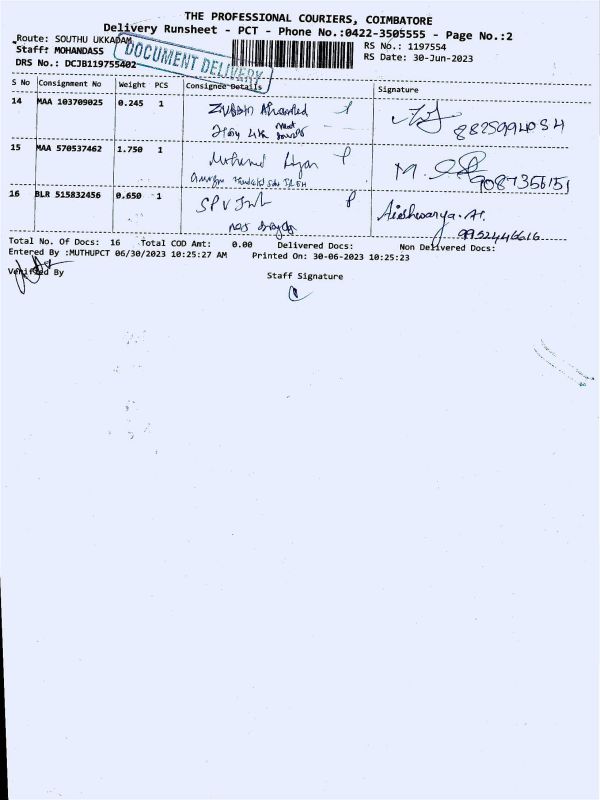 THE PROFESSIONAL COURIERS, COIMBATORE
Delivery Runsheet - PCT - Phone No.:0422-3505555 - Page No.:2
Route: SOUTHU UKKADAM
Staff: MOHANDASS
DRS No.: DCJB119755402
DOCUMENT DELIVERY
RS No.: 1197554
RS Date: 30-Jun-2023
S No Consignment No Weight PCS Consignee Details Signature
14 MAA 103709025 0.245 1
8825994054
15 MAA 570537462 1.750 1
9087356151
16 BLR 515832456 0.650 1 SPV Aishwarya.
9952446616
Total No. Of Docs: 16 Total COD Amt: 0.00 Delivered Docs: Non Delivered Docs:
Entered By :MUTHUPCT 06/30/2023 10:25:27 AM Printed On: 30-06-2023 10:25:23
Verified By Staff Signature